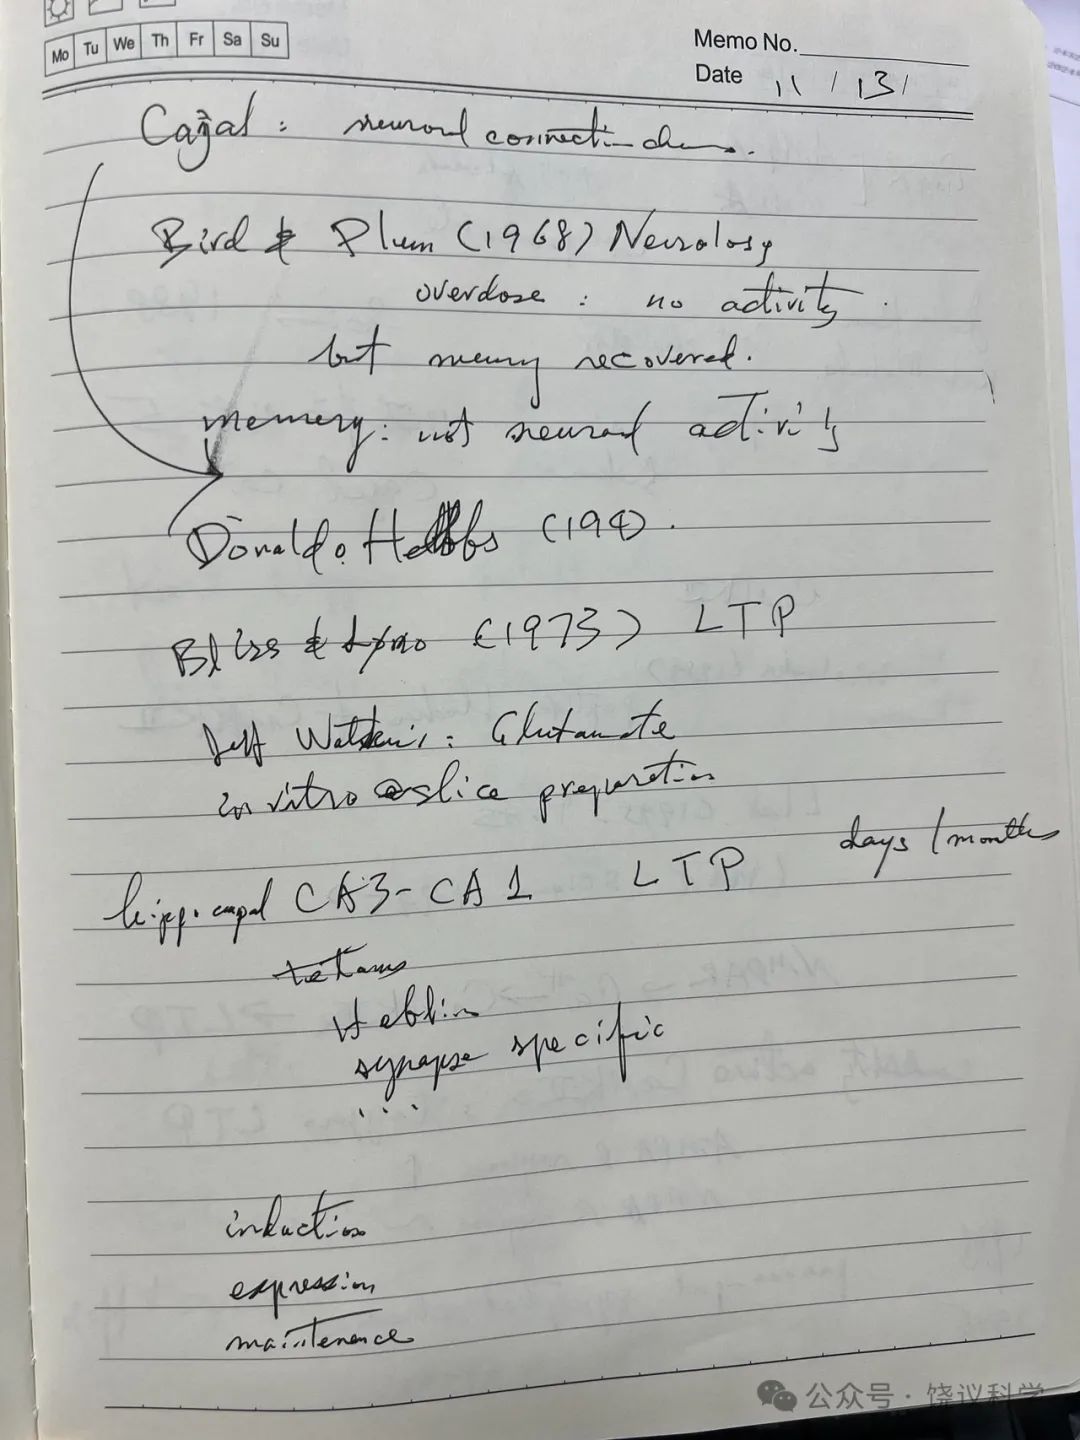 Mo Tu We Th Fr Sa Su
Memo No.
Date 11 / 13 /
Cajal : neuronal connection
Bird & Plum (1968) Neurology
overdose : no activity .
but memory recovered.
memory: not neuronal activity
Donald. Hebbs (19
Bliss & Lømo (1973) LTP
Jeff Watkins : Glutamate
in vitro slice preparation
days / months
hippocampal CA3-CA1 LTP
tetanus
Hebbian
synapse specific
...
induction
expression
maintenence
公众号 · 饶议科学